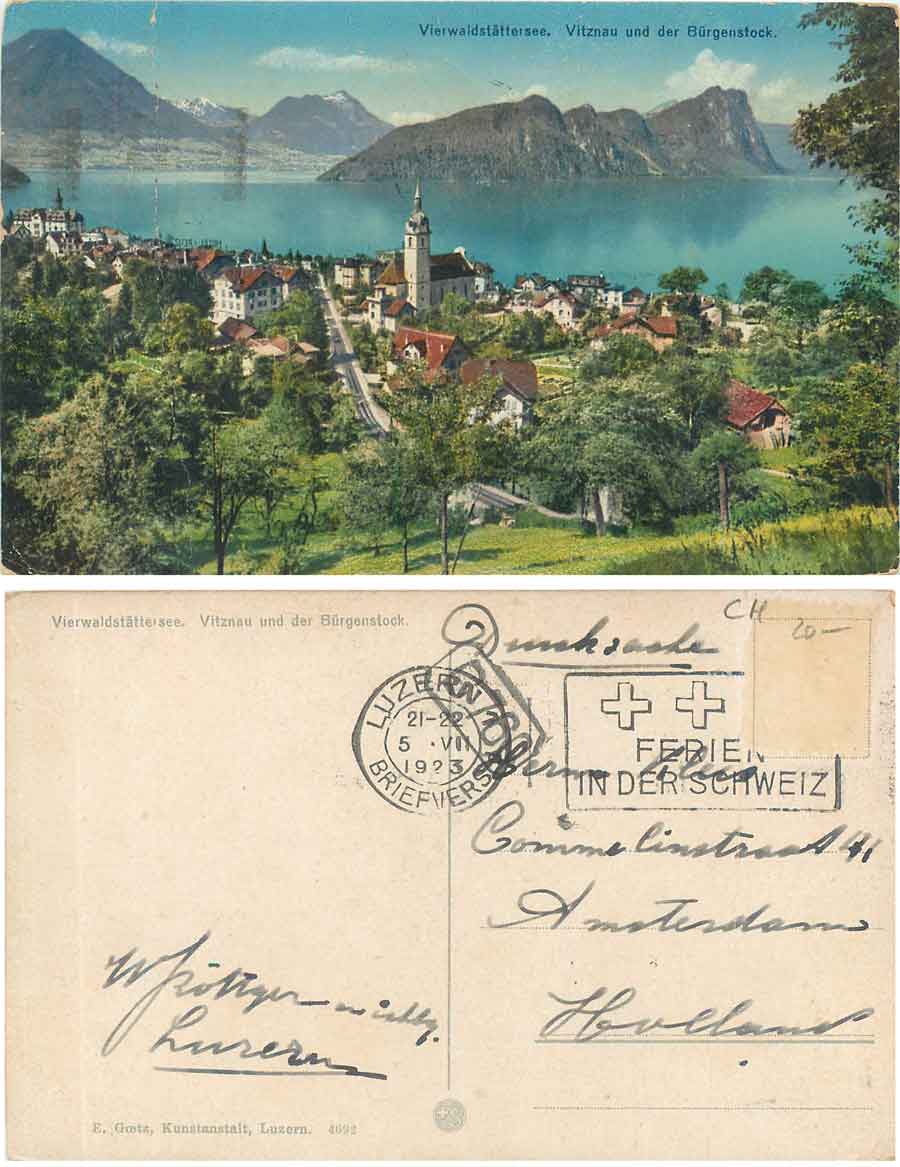 Vierwaldstättersee. Vitznau und der Bürgenstock.
Vierwaldstättersee. Vitznau und der Bürgenstock.
CH
20-
Drucksache
LUZERN
21-22
5 · VII
1923
BRIEFVERS
FERIEN
IN DER SCHWEIZ
Herrn
Commelinstraat 41
Amsterdam
Holland
Luzern
E. Goetz, Kunstanstalt, Luzern. 4692